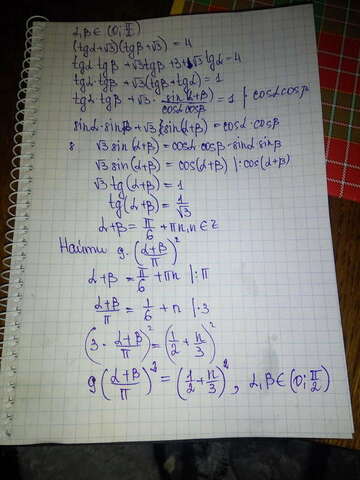 α,β ∈ (0; π/2)
(tgα+√3)(tgβ+√3) = 4
tgα tgβ + √3tgβ + 3 + √3 tgα = 4
tgα·tgβ + √3(tgβ+tgα) = 1
tgα·tgβ + √3 · sin(α+β)/cosα cosβ = 1 | cosα cosβ
sinα·sinβ + √3 (sin(α+β)) = cosα·cosβ
8. √3 sin(α+β) = cosα cosβ - sinα sinβ
√3 sin(α+β) = cos(α+β) |:cos(α+β)
√3 tg(α+β) = 1
tg(α+β) = 1/√3
α+β = π/6 + πn, n∈Z
Найти 9·(α+β/π)²
α+β = π/6 + πn |:π
α+β/π = 1/6 + n |·3
(3 · α+β/π)² = (1/2 + n/3)²
9(α+β/π)² = (1/2 + n/3)², α,β∈(0; π/2)